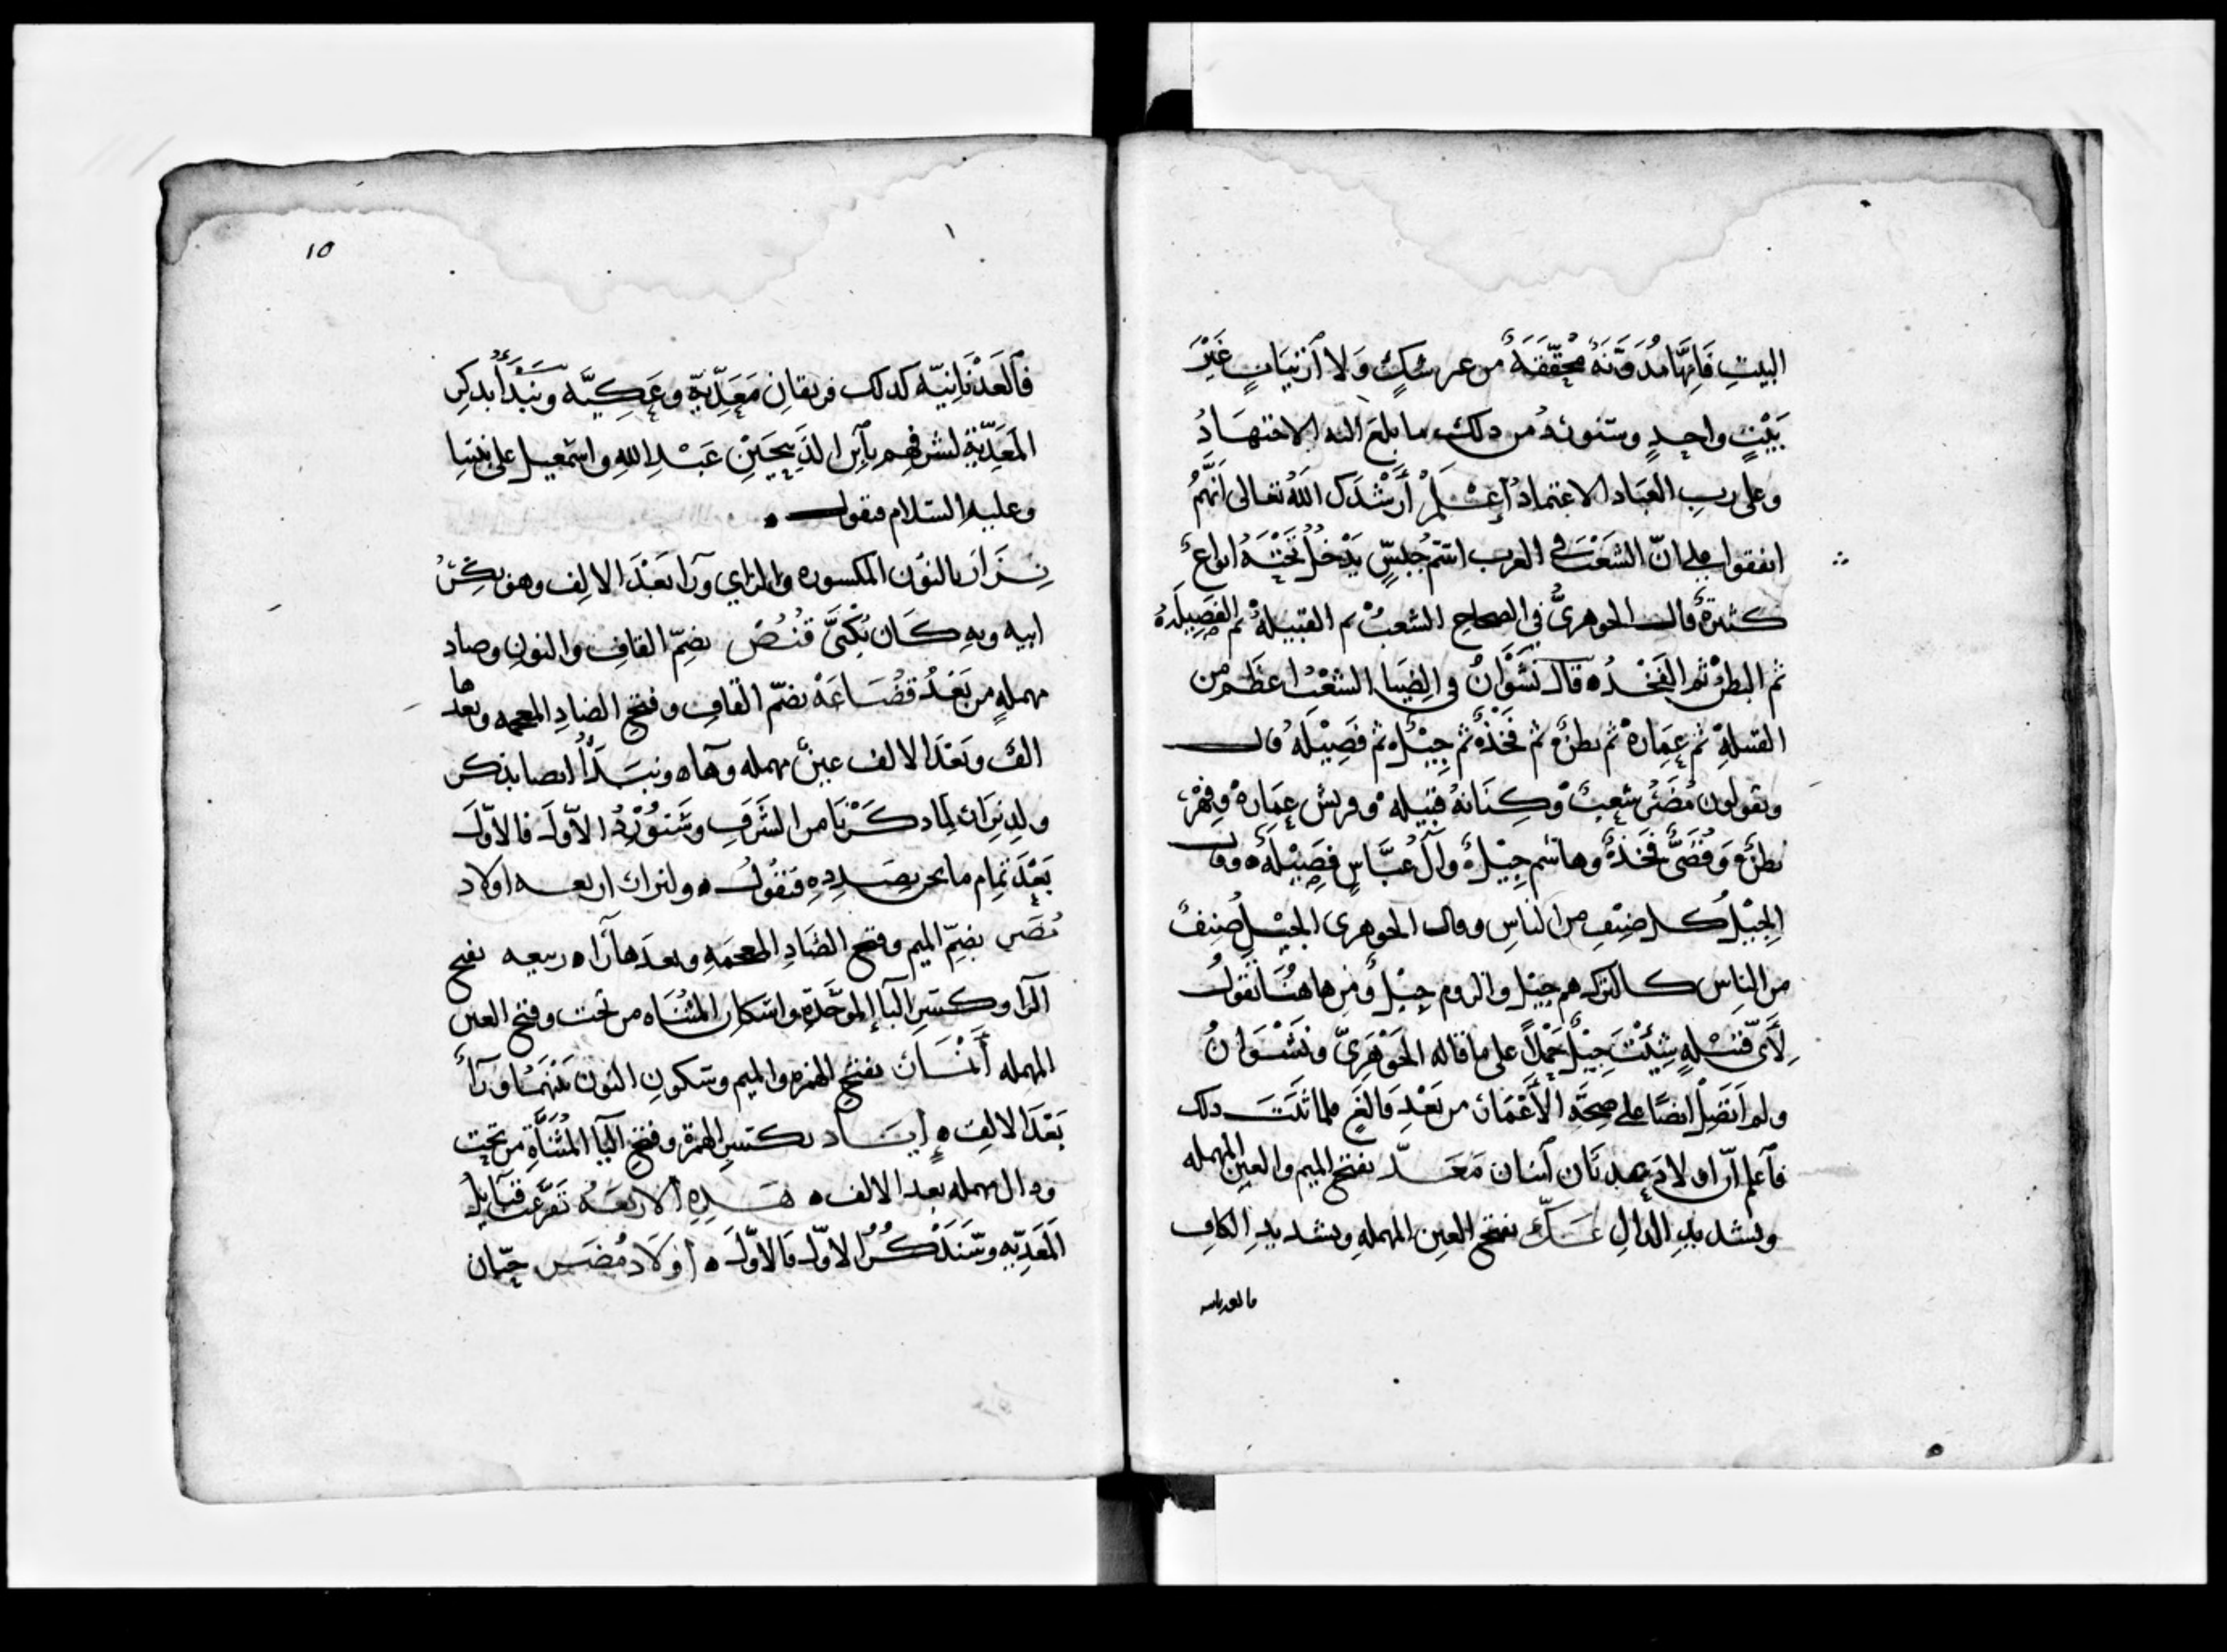 البيتِ فَاِنَّهَا مُدَوَّنَةٌ مُحَقَّقَةٌ من غير شكٍّ وَلا ٱرْتيَابٍ غَيْرَ
بَيْتٍ واحِدٍ وسَنورد من ذلك ما بلغ اليه الاجتهَادُ
وعلى ربِ العبَاد الاعتمادُ إعْلَمْ أَرْشَدَكَ اللَّهُ تعالى اَنَّهُمُ
اتفقوا على انّ الشَعْبَ في العرب اسْمُ جِنْسٍ يَدْخُلُ تَحْتَهُ انواعٌ
كثيرةٌ قالـــ الجوهريُّ في الصحاحِ الشعبُ ثم القبيلةُ ثم الفَصِيلَةُ
ثم البطنُ ثم الفَخْدُ ه قالَ نَشْوَانُ في الضِيَا الشَعْبُ اعظَم من
القبيلةِ ثم عِمَارةٌ ثم بطنٌ ثم فَخْذٌ ثم جِيْلٌ ثم فَصِيْلَةٌ قالـــ
ويقولون مُضَرُ شعبٌ وكِنَانةُ قبيلةٌ وقريش عِمَارةٌ وفِهْرٌ
بطنٌ وَقُصَيٌّ فَخذٌ وهاشم جِيْلٌ وآلُ عبَّاسٍ فَصِيْلَةٌ ه وقالـــ
الجِيْلُ كــل صِنْفٍ من الناسِ وقال الجوهرى الجِيْـلُ صنِفٌ
من الناسِ كــالترك هم جِيْل والروم جيْلٌ ومِن هاهنُــا نقولُ
لِأَىّ قبيْلهٍ شِئْتَ جِيْلٌ حَمْلاً على ما قاله الجَوْهَرِىّ ونَشْـوَانُ
ولم اَتَّصِلْ ايضًا على صِحَّةِ الأَعْمَار من بَعْدِ فَالَغٍ فلما ثَبَتَ ذلك
فٱعلم انّ اولادَ عدنَان ٱثنان مَعَــدّ بفتح الميم والعين المهمله
وتشديدِ الدالِ عَــكّ بفتح العين المهملهِ وتشديدِ الكافِ
فالعدنانيه
١٥
فٱلعَدْنَانِيّه كذلك فريقانِ مَعَدِّيّةٍ وعَكِيَّه ونَبْدَأُ بذكر
المَعَدِّيّةِ لشرفِهِم بٱبن الذَبِيْحَيْنِ عَبْــدِ اللهِ واسْمعيل على نبينا
وعليه السّلام فنقولـــ ه
نِــزَار بالنوْن المكسوره والزاي ورَا بَعْدَ الالِف وهو بِكْرُ
ابيه وبهِ كَـان يُكْنَىَّ قُنُصٌ بضمّ القافِ والنونِ وصاد
مهملهٍ من بَعْدُ قُضَــاعَةْ بضمّ القافِ وفتحِ الضادِ المعجمه وبعدها
الفٌ وبَعْدَ الالف عينٌ مهمله وهاه ونبــدَأُ ايضا بذكر
ولدِ نِزَار لِمَا ذكَــرْنَا من الشَرَفِ وسَنوْرِدُ الاّولَ فالاوّلَ
بَعْدَ تَمَامِ ما نحن بصَـددِهِ فنقُولُــ ه ولنزار اربعــه اولاد
مُضَر بضمّ الميم وفتح الضَادِ المعجمَهِ وبعدَها رَا ه ربيعه بفتح
الرا وكــسْرِ البَآ الموحَّدةِ واسْكانِ المثنَاه من تحت وفتح العين
المهمله أَنْمَــار بفتح الهمزه والميم وسكونِ النون بَيْنَهمَا ورَآءٌ
بَعْدَ الالِفِ ه إيَــاد بكــسرِ الهمزة وفتح اليآ المُثَنَّاةِ من تحت
ودال مهمله بعد الالف ه هَــذِهِ الاربعَةُ تَفَرَّعت قبَايلُ
المَعَدِّيّه وسَنَذْكُـرُ الاوّل فالاوّلَ ه اوْلَادُ مُضَــر حيّان